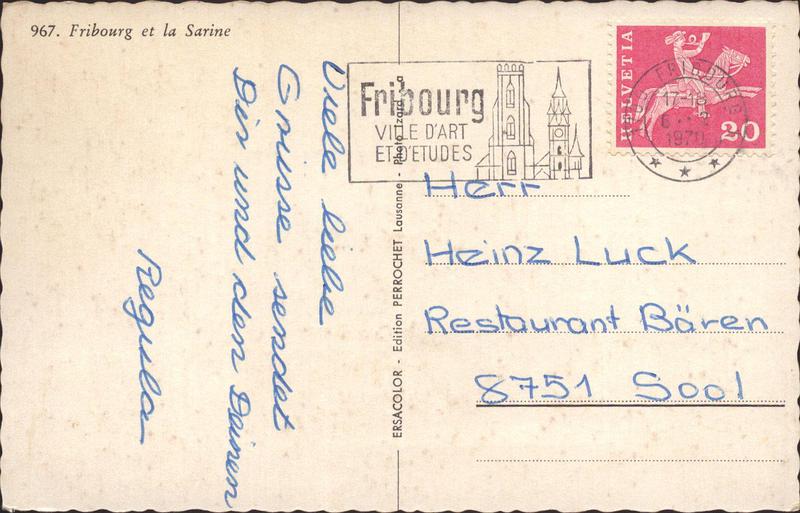 967. Fribourg et la Sarine
Viele liebe
Grüsse sendet
Dir und den Deinen
Regula
ERSACOLOR - Edition PERROCHET Lausanne - Photo Izard
Fribourg
VILLE D'ART
ET D'ETUDES
HELVETIA
20
FRIBOURG
1970
Herr
Heinz Luck
Restaurant Bären
8751 Sool